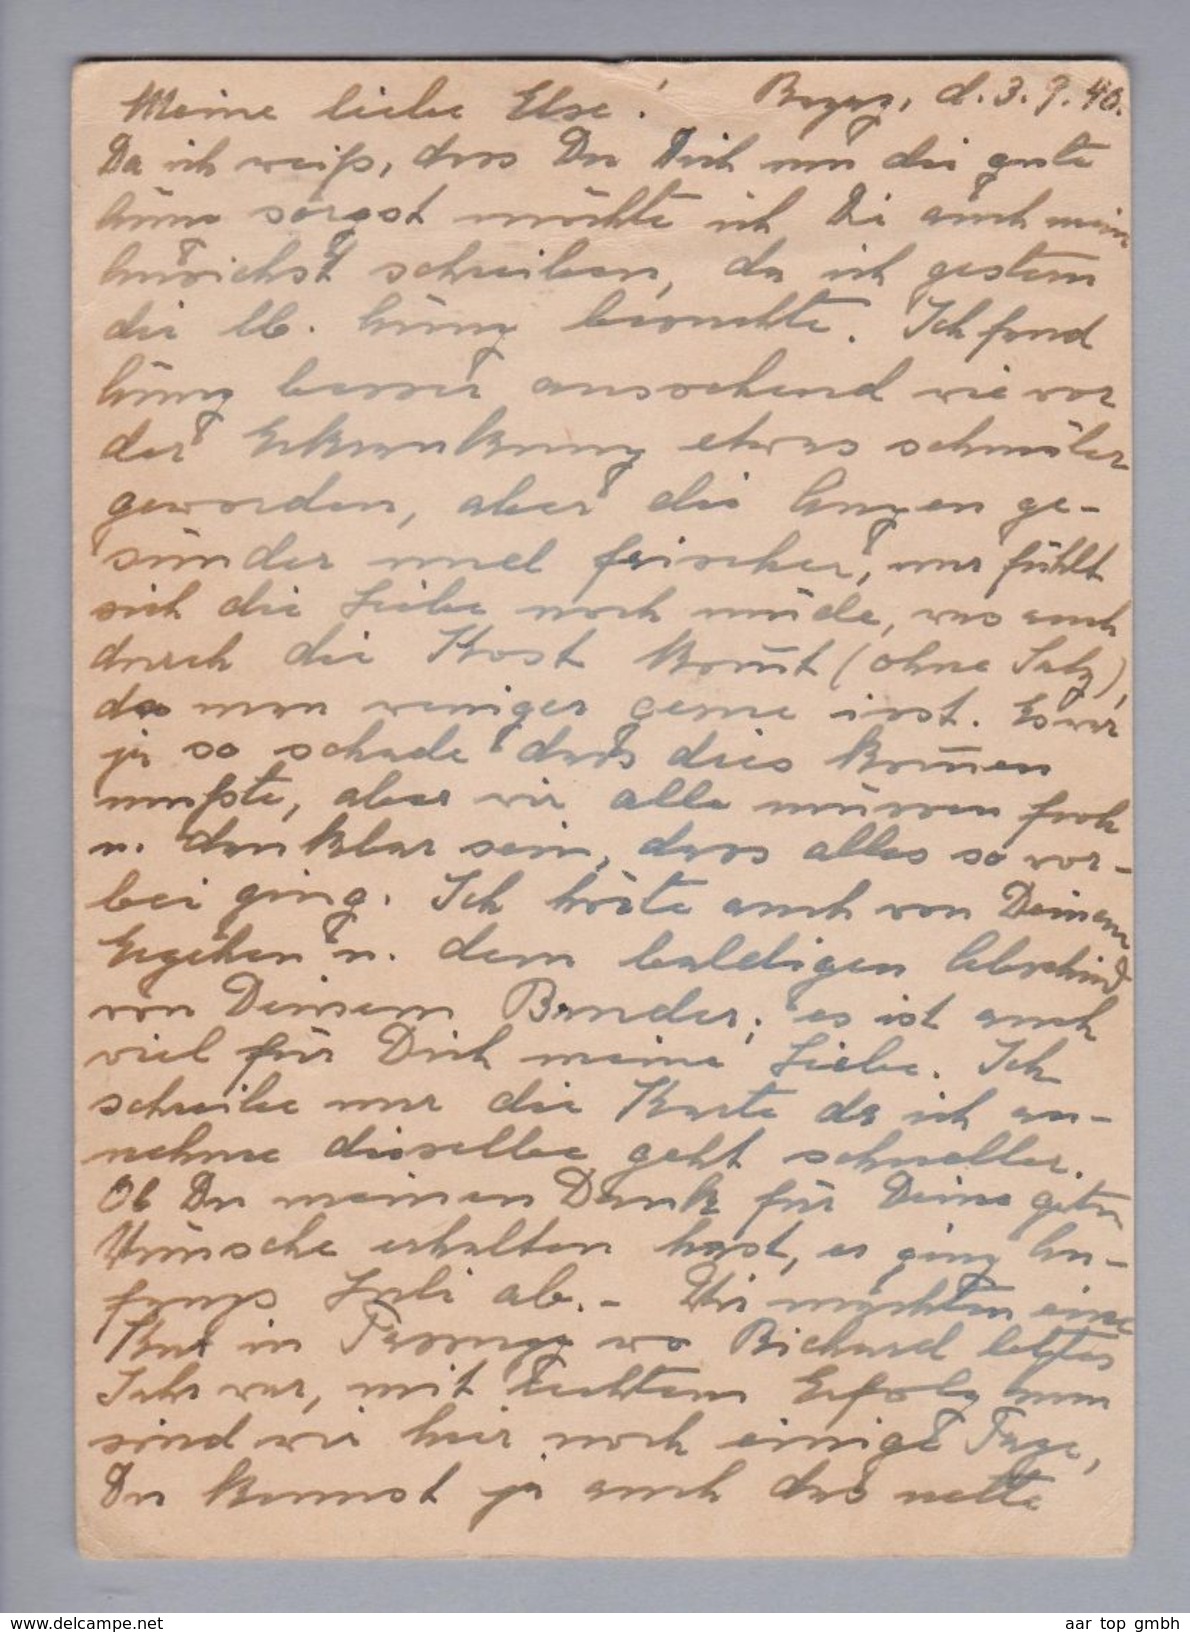 Meine liebe Else! d. 3.9.40.
Da ich weiß, dass Du Dich um die gute
sorgst möchte ich Di auch mein
schreiben, da ich gestern
die lb. besuchte. Ich fand
besser aussehend wie vor
der Erkrankung etwas schmäler
geworden, aber die Augen ge-
sünder und frischer, nur fühlt
sich die Liebe noch müde, was auch
durch die Kost kom̅t (ohne Salz),
da man weniger gerne isst. Es war
ja so schade dass dies kom̅en
mußte, aber wir alle müssen froh
u. dankbar sein, dass alles so vor-
bei ging. Ich hörte auch von Deinem
Ergehen u. dem baldigen Abschied
von Deinem Bruder; es ist auch
viel für Dich meine Liebe. Ich
schreibe nur die Karte da ich an-
nehme dieselbe geht schneller.
Ob Du meinen Dank für Deine guten
Wünsche erhalten hast, er ging An-
fangs Juli ab. - Wir machten eine
Kur in wo Richard letztes
Jahr war, mit Erfolg nun
sind wir hier noch einige Tage,
Du kennst ja auch das nette
www.delcampe.net
aar top gmbh